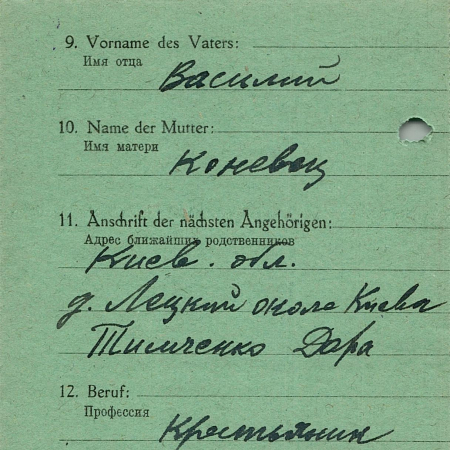 9. Vorname des Vaters:
Имя отца
Василий
10. Name der Mutter:
Имя матери
Коневец
11. Anschrift der nächsten Angehörigen:
Адрес ближайших родственников
Киев. обл.
д. Лецкий около Киева
Тимченко Дора
12. Beruf:
Профессия
Крестьянин